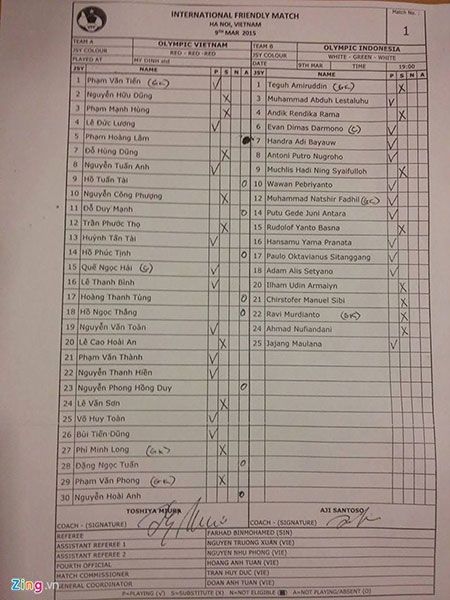 INTERNATIONAL FRIENDLY MATCH
HA NOI, VIETNAM
9TH MAR 2015
Match No.
1
VFF
TEAM A OLYMPIC VIETNAM TEAM B OLYMPIC INDONESIA
JSY COLOUR RED - RED -RED JSY COLOUR WHITE - GREEN - WHITE
PLAYED AT MY DINH std DATE 9TH MAR TIME 19:00
JSY NAME P S N A JSY NAME P S N A
1 Phạm Văn Tiến (GK) √ 1 Teguh Amiruddin (GK) X
2 Nguyễn Hữu Dũng X 3 Muhammad Abduh Lestaluhu √
3 Phạm Mạnh Hùng X 4 Andik Rendika Rama X
4 Lê Đức Lương √ 6 Evan Dimas Darmono (C) √
5 Phạm Hoàng Lâm 7 Handra Adi Bayauw √
7 Đỗ Hùng Dũng X 8 Antoni Putro Nugroho √
8 Nguyễn Tuấn Anh √ 9 Muchlis Hadi Ning Syaifulloh X
9 Hồ Tuấn Tài O 10 Wawan Pebriyanto √
10 Nguyễn Công Phượng X 12 Muhammad Natshir Fadhil (GK) √
11 Đỗ Duy Mạnh O 14 Putu Gede Juni Antara √
12 Trần Phước Thọ X 15 Rudolof Yanto Basna X
13 Huỳnh Tấn Tài √ 16 Hansamu Yama Pranata √
14 Hồ Phúc Tịnh O 17 Paulo Oktavianus Sitanggang √
15 Quế Ngọc Hải (C) √ 18 Adam Alis Setyano √
16 Lê Thanh Bình √ 20 Ilham Udin Armaiyn X
17 Hoàng Thanh Tùng O 21 Chirstofer Manuel Sibi X
18 Hồ Ngọc Thắng O 22 Ravi Murdianto (GK) X
19 Nguyễn Văn Toàn √ 24 Ahmad Nufiandani X
20 Lê Cao Hoài An X 25 Jajang Maulana √
21 Phạm Văn Thành √
22 Nguyễn Thanh Hiền √
23 Nguyễn Phong Hồng Duy O
24 Lê Văn Sơn X
25 Võ Huy Toàn √
26 Bùi Tiến Dũng √
27 Phí Minh Long (GK) X
28 Đặng Ngọc Tuấn O
29 Phạm Văn Phong (GK) X
30 Nguyễn Hoài Anh O
TOSHIYA MIURA AJI SANTOSO
COACH - (SIGNATURE) COACH - (SIGNATURE)
REFEREE FARHAD BINMOHAMED (SIN)
ASSISTANT REFEREE 1 NGUYEN TRUONG XUAN (VIE)
ASSISTANT REFEREE 2 NGUYEN NHU PHONG (VIE)
FOURTH OFFICIAL HOANG ANH TUAN (VIE)
MATCH COMMISSIONER TRAN HUY DUC (VIE)
GENERAL COORDINATOR DOAN ANH TUAN (VIE)
P=PLAYING (√) S=SUBSTITUTE (X) N=NOT ELIGIBLE (●) A=NOT PLAYING/ABSENT (O)
Zing.vn